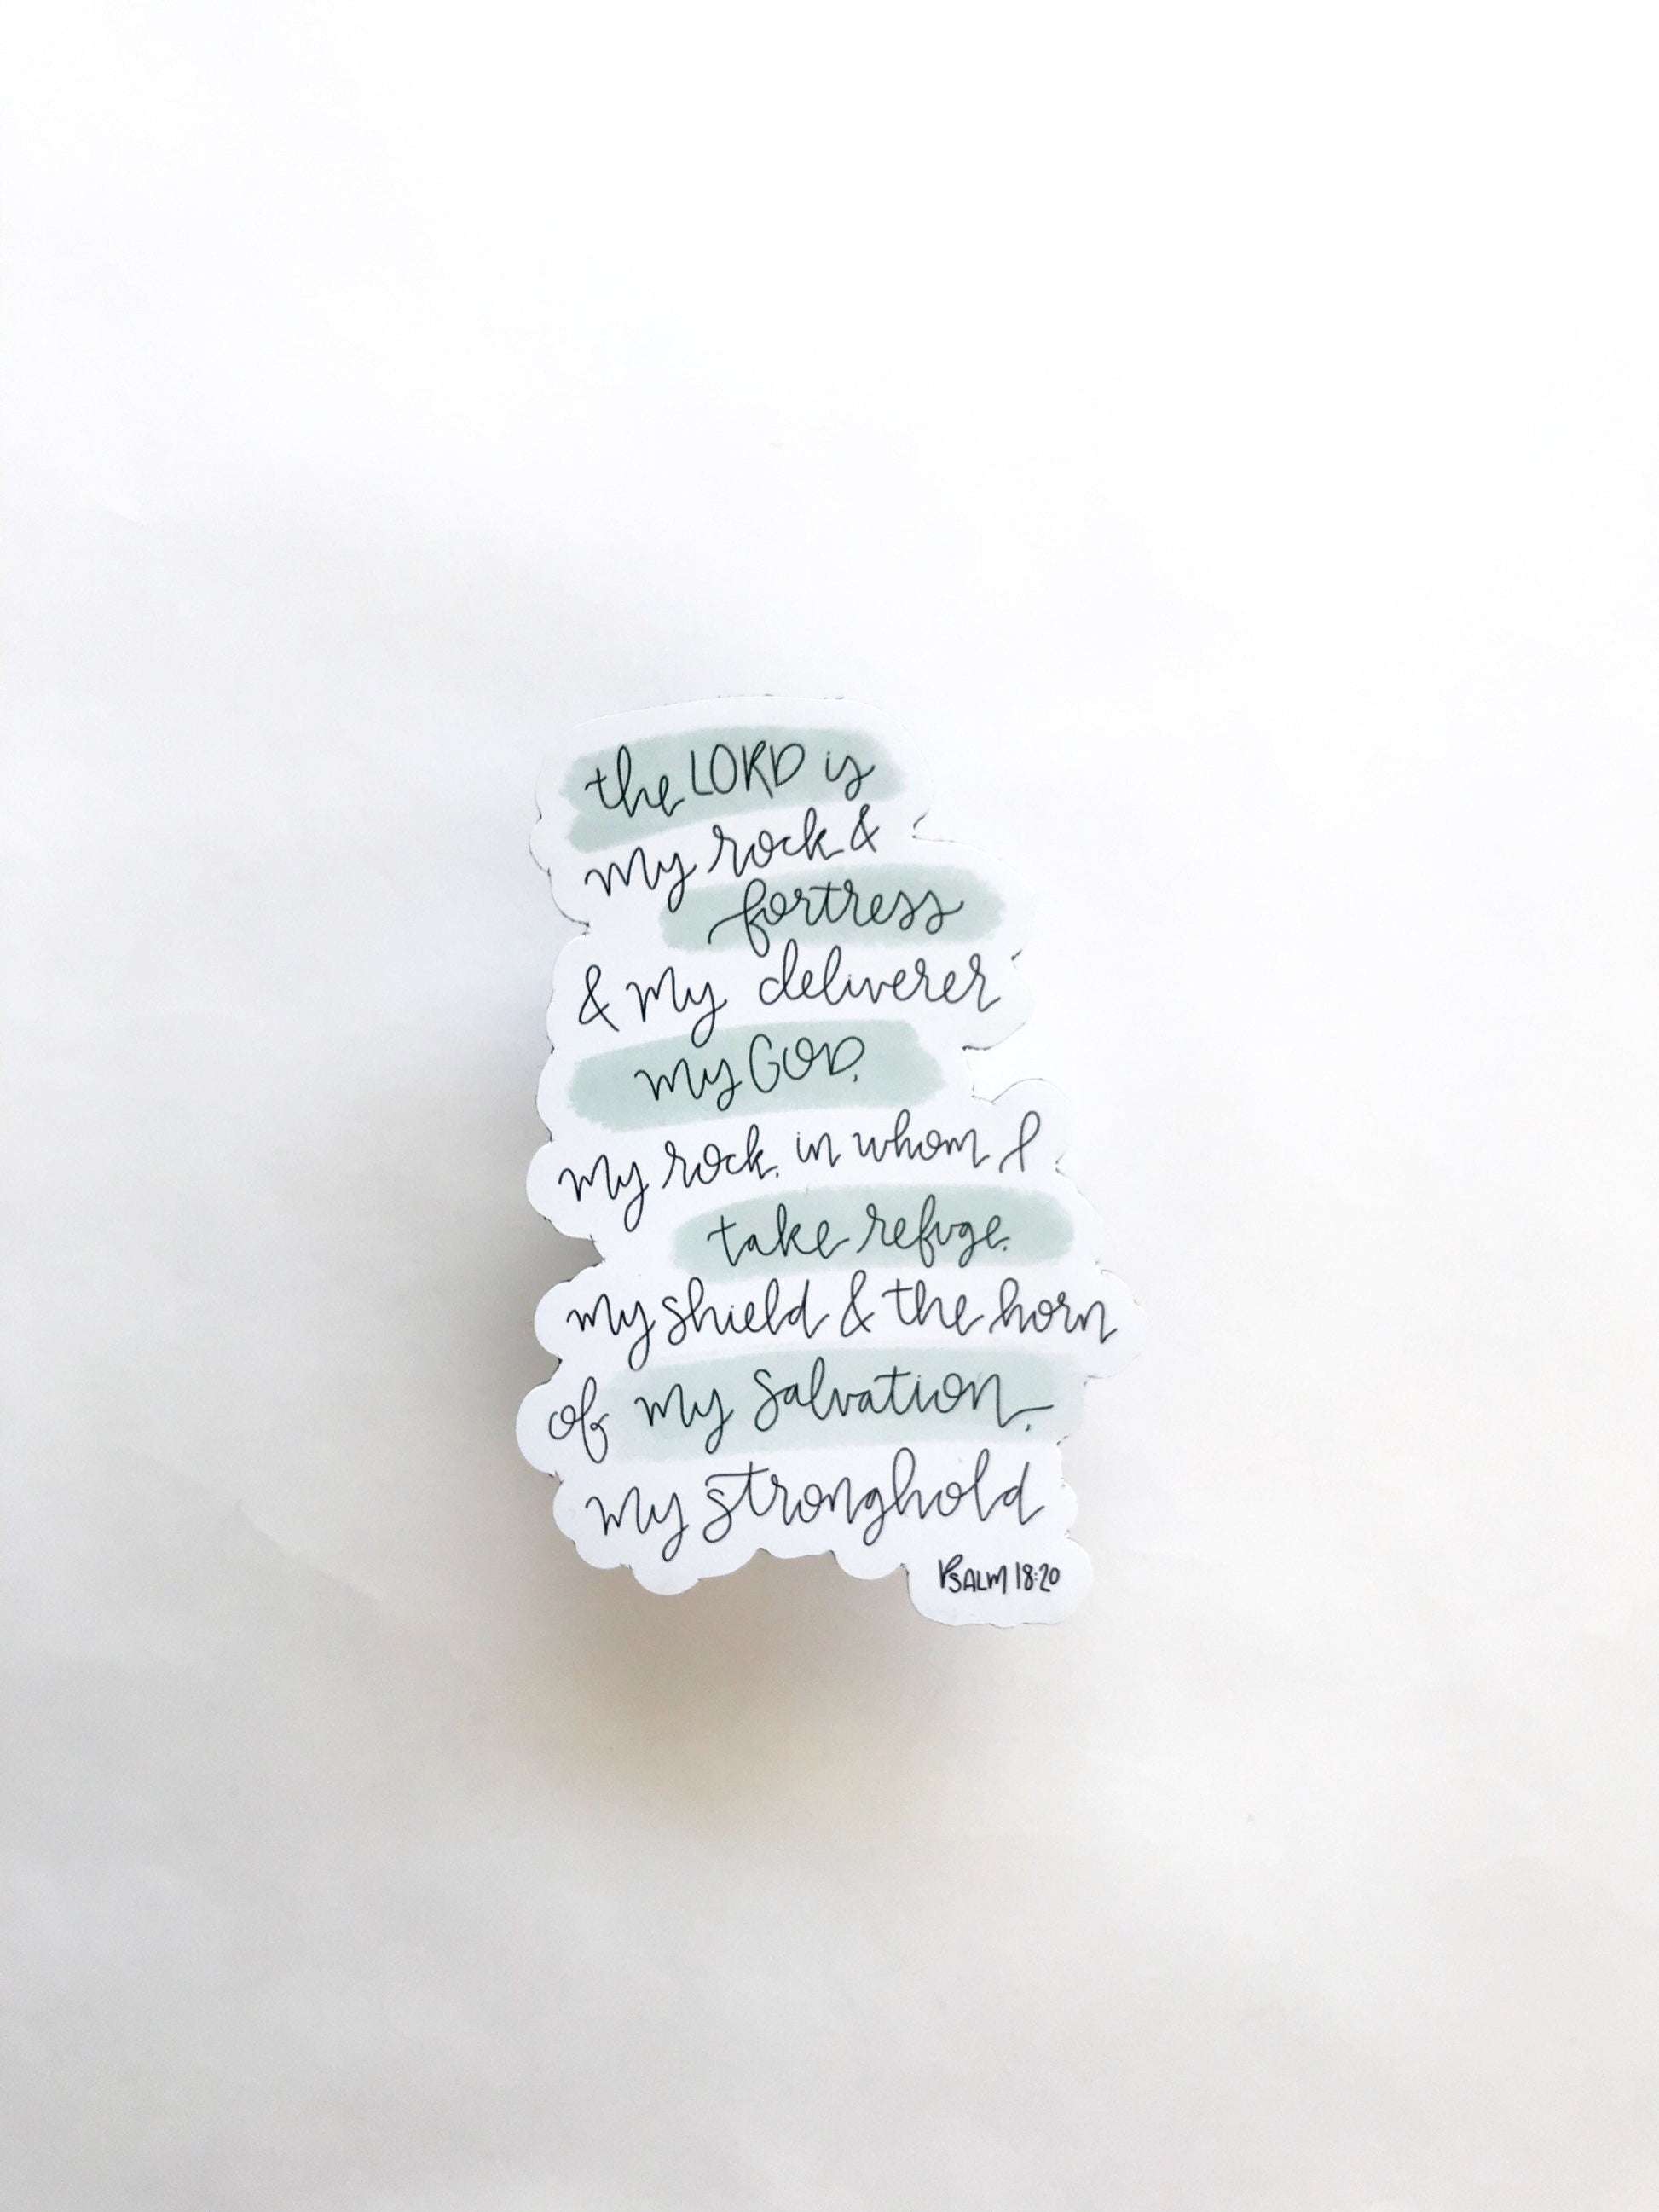 the LORD is
my rock &
fortress
& my deliverer
my GOD,
my rock, in whom I
take refuge,
my shield & the horn
of my salvation,
my stronghold
PSALM 18:20